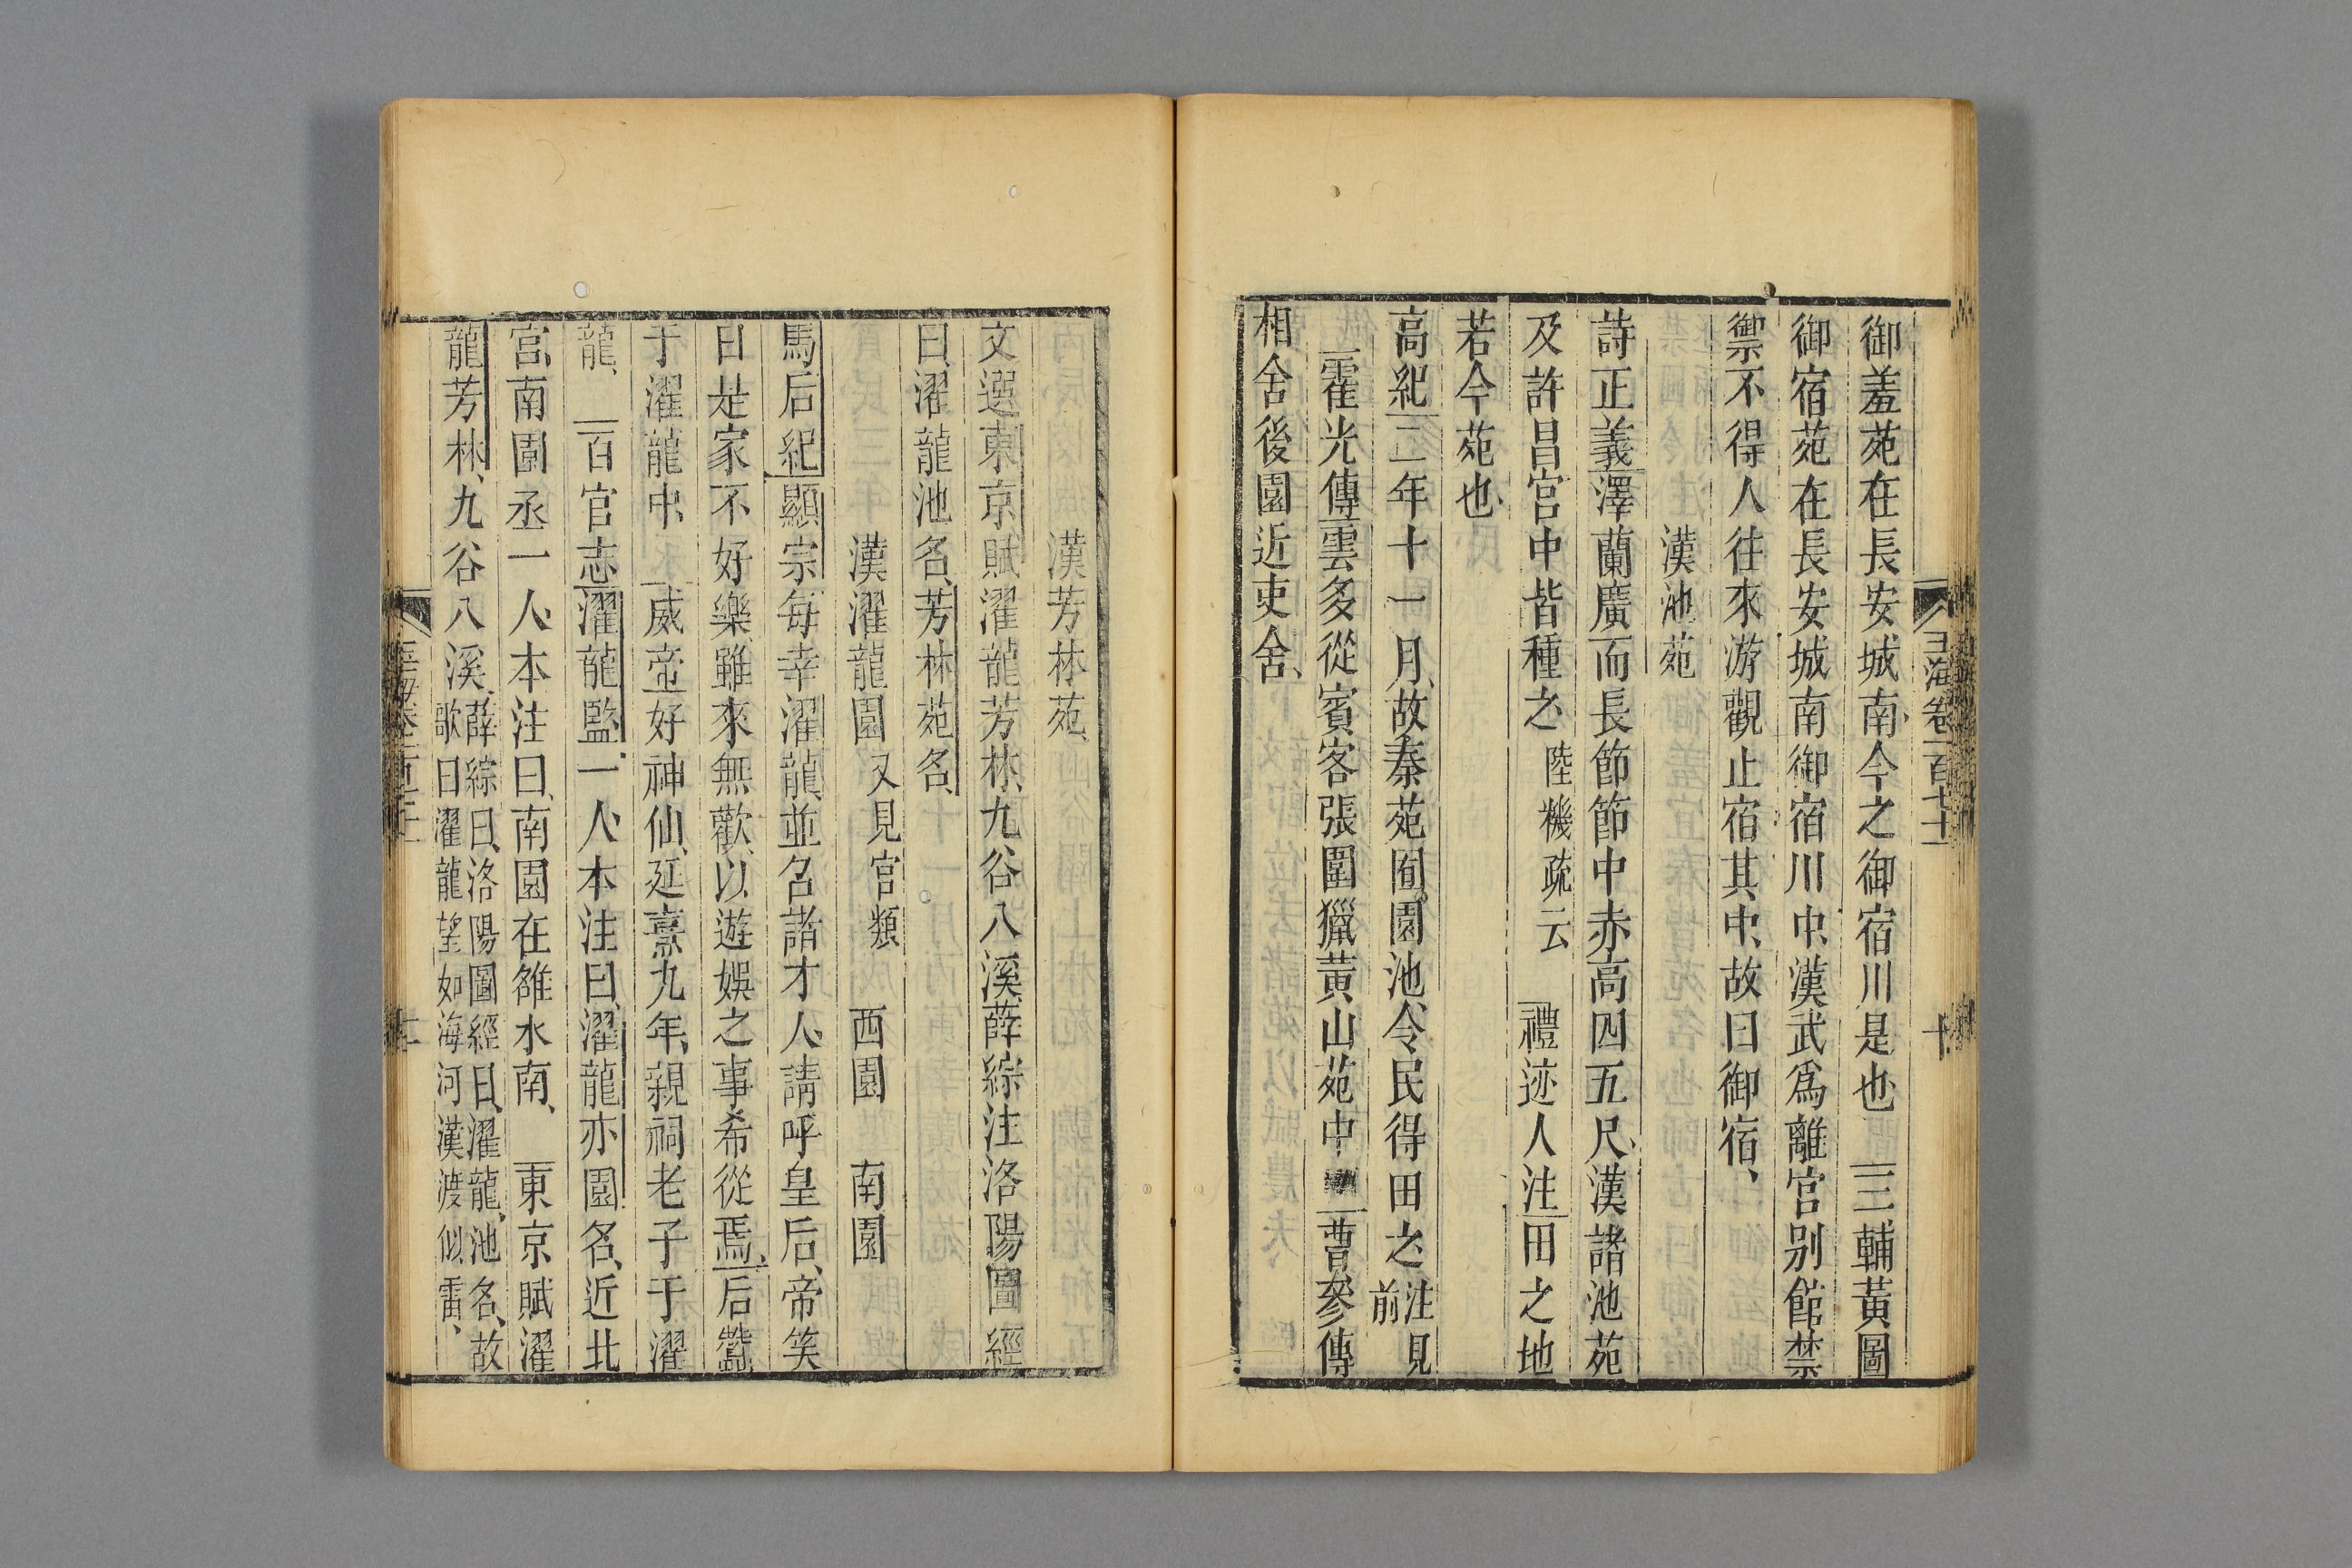 玉海卷一百七十一
十
御羞苑在長安城南今之御宿川是也 三輔黃圖
御宿苑在長安城南御宿川中漢武爲離宮別館禁
禦不得人往來游觀止宿其中故曰御宿
漢池苑
詩正義澤蘭廣而長節節中赤高四五尺漢諸池苑
及許昌宮中皆種之 陸機疏云 禮迹人注田之地
若今苑也
高紀二年十一月故秦苑囿園池令民得田之 注見前
霍光傳雲多從賓客張圍獵黃山苑中 曹參傳
相舍後園近吏舍
漢芳林苑
文選東京賦濯龍芳林九谷八溪薛綜注洛陽圖經
曰濯龍池名芳林苑名
漢濯龍園 又見宮類 西園 南園
馬后紀顯宗每幸濯龍並名諸才人請呼皇后帝笑
曰是家不好樂雖來無歡以遊娛之事希從焉 后蠶
于濯龍中 威帝好神仙延熹九年親祠老子于濯
龍 百官志濯龍監一人本注曰濯龍亦園名近北
宮南園丞一人本注曰南園在雒水南 東京賦濯
龍芳林九谷八溪 薛綜曰洛陽圖經曰濯龍池名故
歌曰濯龍望如海河漢渡似雷